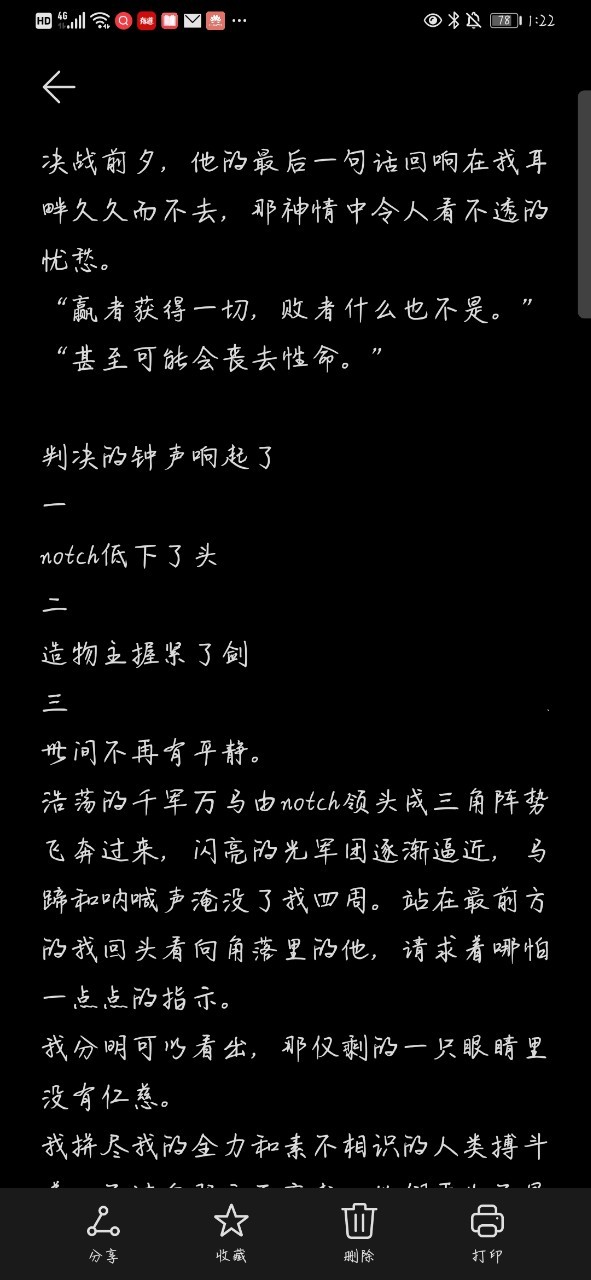 HD 4G 78 1:22
决战前夕，他的最后一句话回响在我耳
畔久久而不去，那神情中令人看不透的
忧愁。
“赢者获得一切，败者什么也不是。”
“甚至可能会丧去性命。”
判决的钟声响起了
一
notch低下了头
二
造物主握紧了剑
三
世间不再有平静。
浩荡的千军万马由notch领头成三角阵势
飞奔过来，闪亮的光军团逐渐逼近，马
蹄和呐喊声淹没了我四周。站在最前方
的我回头看向角落里的他，请求着哪怕
一点点的指示。
我分明可以看出，那仅剩的一只眼睛里
没有仁慈。
我拼尽我的全力和素不相识的人类搏斗
分享 收藏 删除 打印